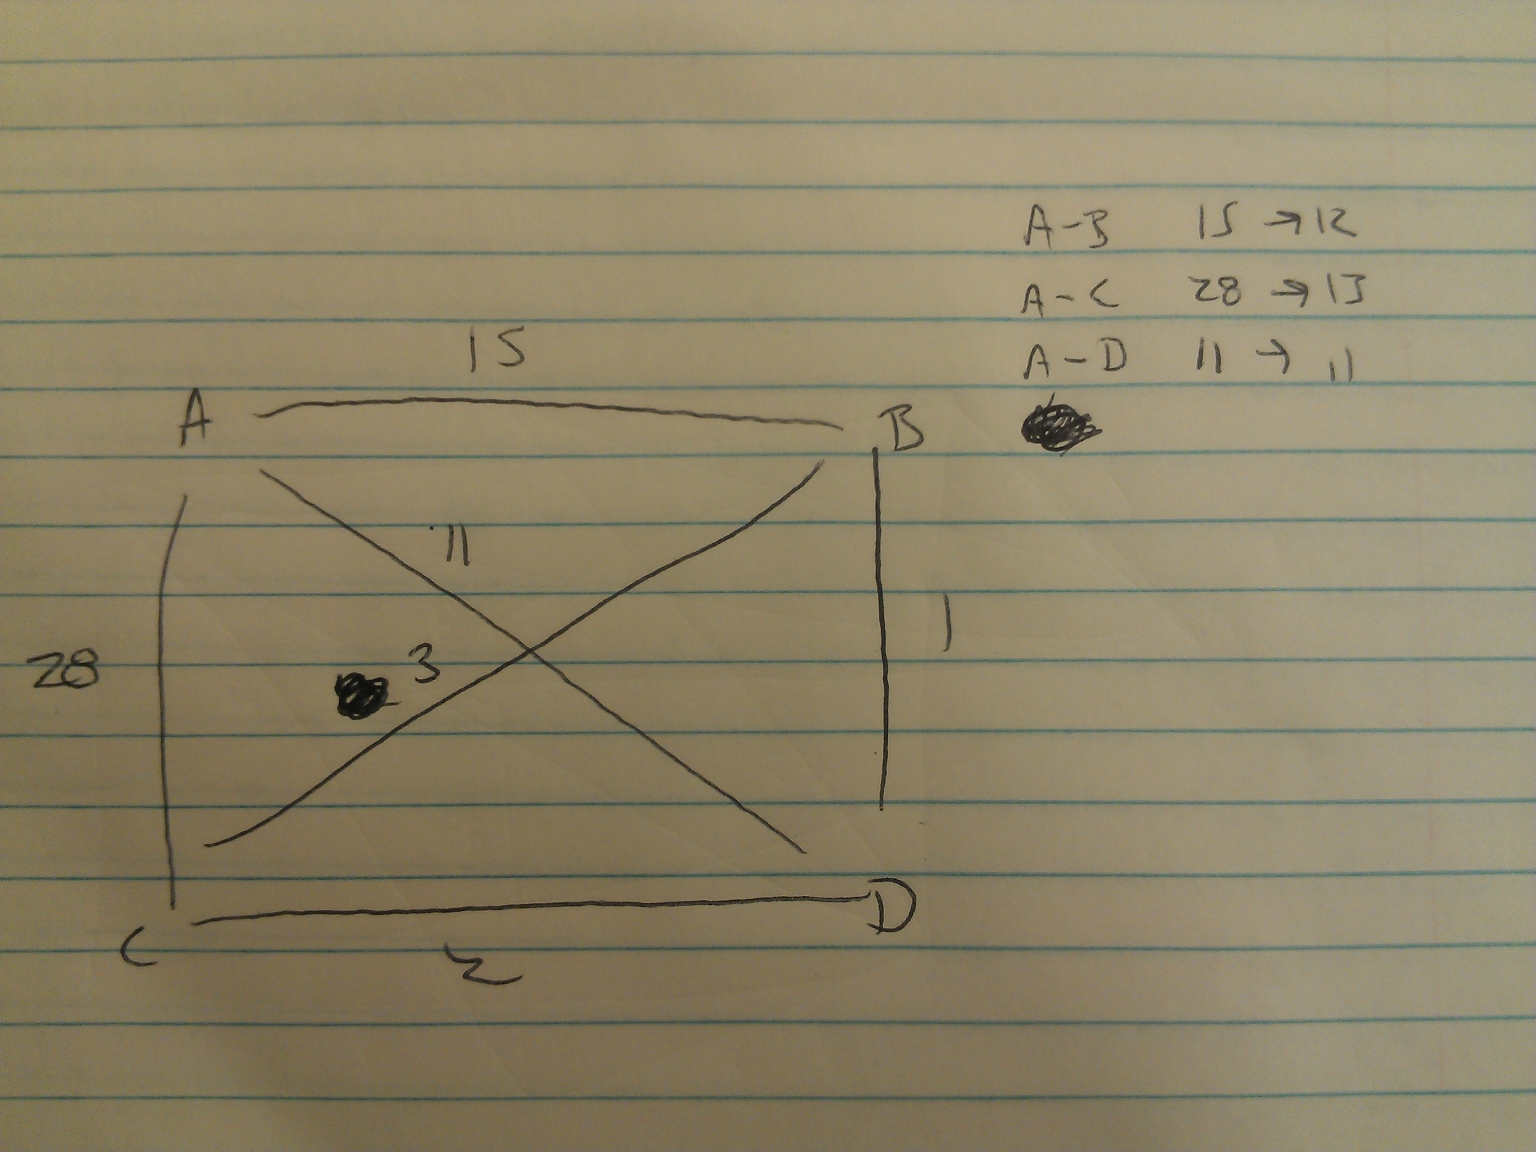 A-B 15 → 12
A-C 28 → 13
A-D 11 → 11
15
A B
11
1
3
28
C D
2